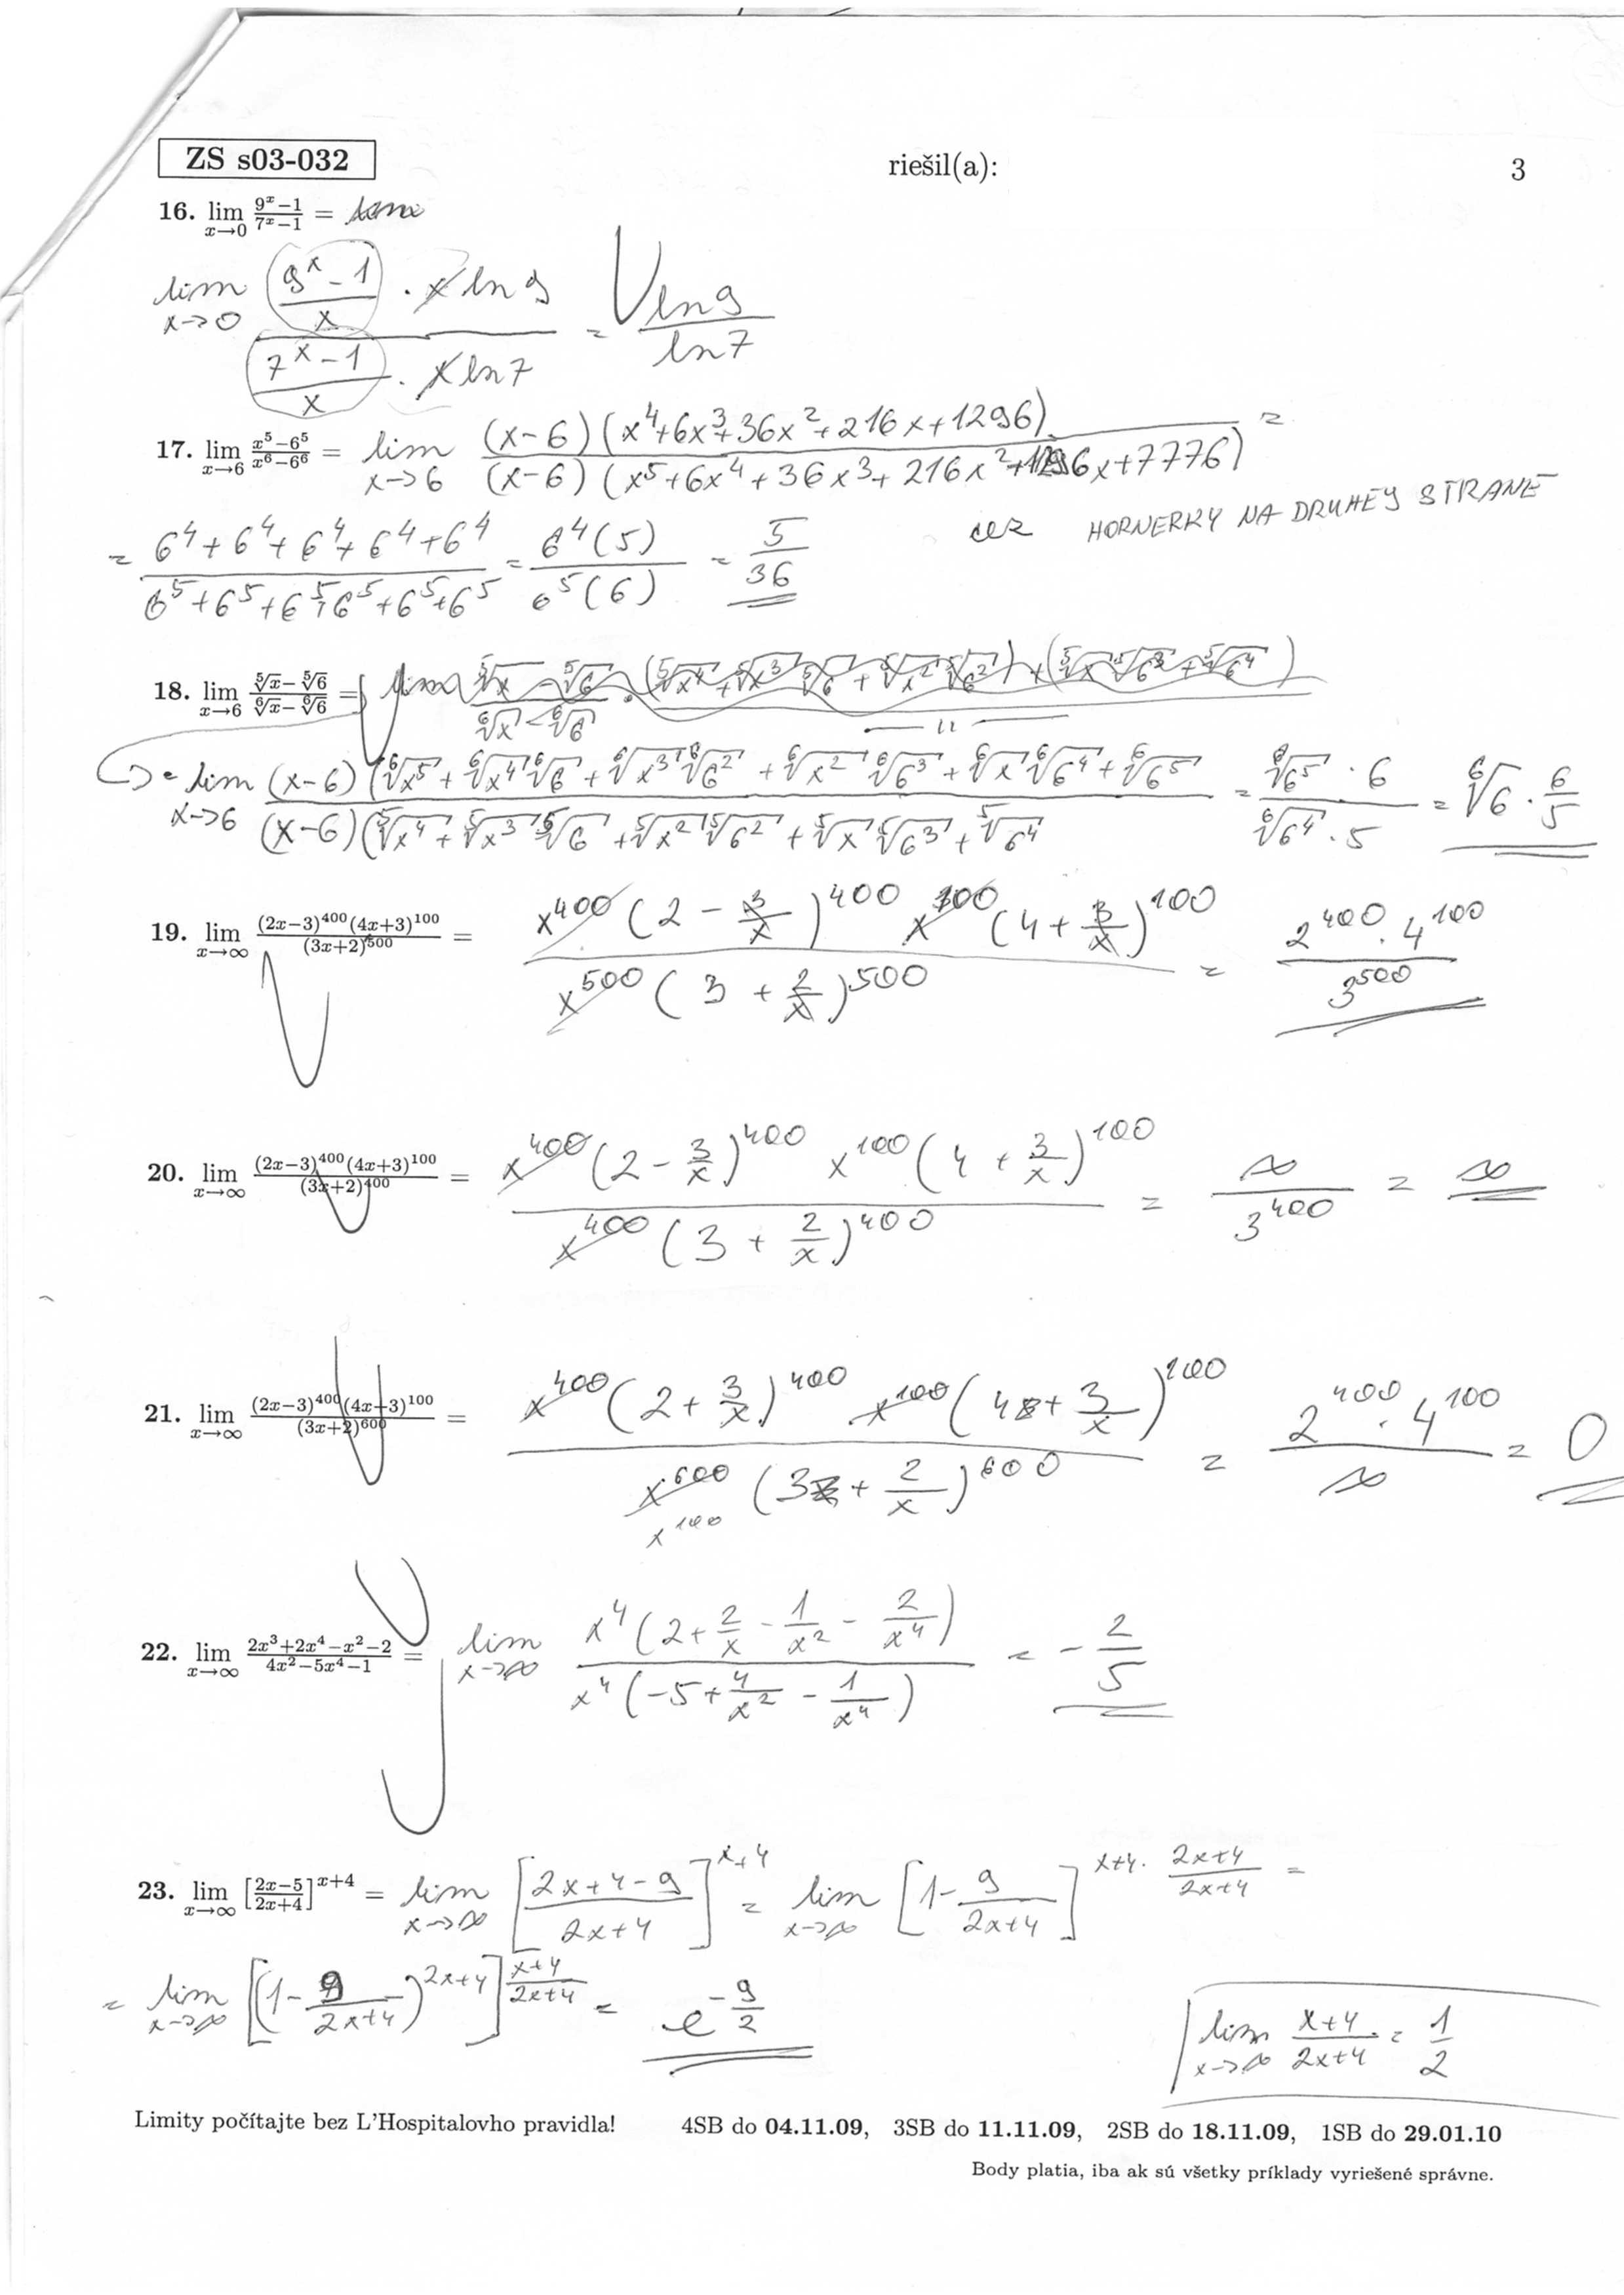 ZS s03-032 riešil(a): 3
16. lim x→0 (9^x−1)/(7^x−1) =
lim x→0 ((9^x − 1)/x · x ln 9)/((7^x − 1)/x · x ln 7) = ln 9/ln 7
17. lim x→6 (x^5−6^5)/(x^6−6^6) = lim x→6 ((x−6)(x^4+6x^3+36x^2+216x+1296))/((x−6)(x^5+6x^4+36x^3+216x^2+1296x+7776)) =
cez HORNERKY NA DRUHEJ STRANE
= (6^4+6^4+6^4+6^4+6^4)/(6^5+6^5+6^5+6^5+6^5+6^5) = 6^4(5)/6^5(6) = 5/36
18. lim x→6 (⁵√x − ⁵√6)/(⁶√x − ⁶√6) = lim (⁵√x − ⁵√6)/(⁶√x − ⁶√6) · (⁵√x^4 + ⁵√x^3 ⁵√6 + ⁵√x^2 ⁵√6^2) + (⁵√x ⁵√6^3 + ⁵√6^4) / — 11 —
= lim x→6 (x−6)(⁶√x^5 + ⁶√x^4 ⁶√6 + ⁶√x^3 ⁶√6^2 + ⁶√x^2 ⁶√6^3 + ⁶√x ⁶√6^4 + ⁶√6^5 / (x−6)(⁵√x^4 + ⁵√x^3 ⁵√6 + ⁵√x^2 ⁵√6^2 + ⁵√x ⁵√6^3 + ⁵√6^4 = (⁶√6^5 · 6)/(⁶√6^4 · 5) = ⁶√6 · 6/5
19. lim x→∞ ((2x−3)^400 (4x+3)^100)/(3x+2)^500 = (x^400 (2 − 3/x)^400 x^100 (4 + 3/x)^100)/(x^500 (3 + 2/x)^500) = (2^400 · 4^100)/3^500
20. lim x→∞ ((2x−3)^400 (4x+3)^100)/(3x+2)^400 = (x^400 (2 − 3/x)^400 x^100 (4 + 3/x)^100)/(x^400 (3 + 2/x)^400) = ∞/3^400 = ∞
21. lim x→∞ ((2x−3)^400 (4x+3)^100)/(3x+2)^600 = (x^400 (2 + 3/x)^400 x^100 (4 + 3/x)^100)/(x^600 (3 + 2/x)^600) = (2^400 · 4^100)/∞ = 0
x^100
22. lim x→∞ (2x^3+2x^4−x^2−2)/(4x^2−5x^4−1) = lim x→∞ (x^4(2 + 2/x − 1/x^2 − 2/x^4))/(x^4(−5 + 4/x^2 − 1/x^4)) = −2/5
23. lim x→∞ [(2x−5)/(2x+4)]^(x+4) = lim x→∞ [(2x+4−9)/(2x+4)]^(x+4) = lim x→∞ [1 − 9/(2x+4)]^(x+4 · (2x+4)/(2x+4)) =
= lim x→∞ [(1 − 9/(2x+4))^(2x+4)]^((x+4)/(2x+4)) = e^(−9/2)
lim x→∞ (x+4)/(2x+4) = 1/2
Limity počítajte bez L'Hospitalovho pravidla! 4SB do 04.11.09, 3SB do 11.11.09, 2SB do 18.11.09, 1SB do 29.01.10
Body platia, iba ak sú všetky príklady vyriešené správne.